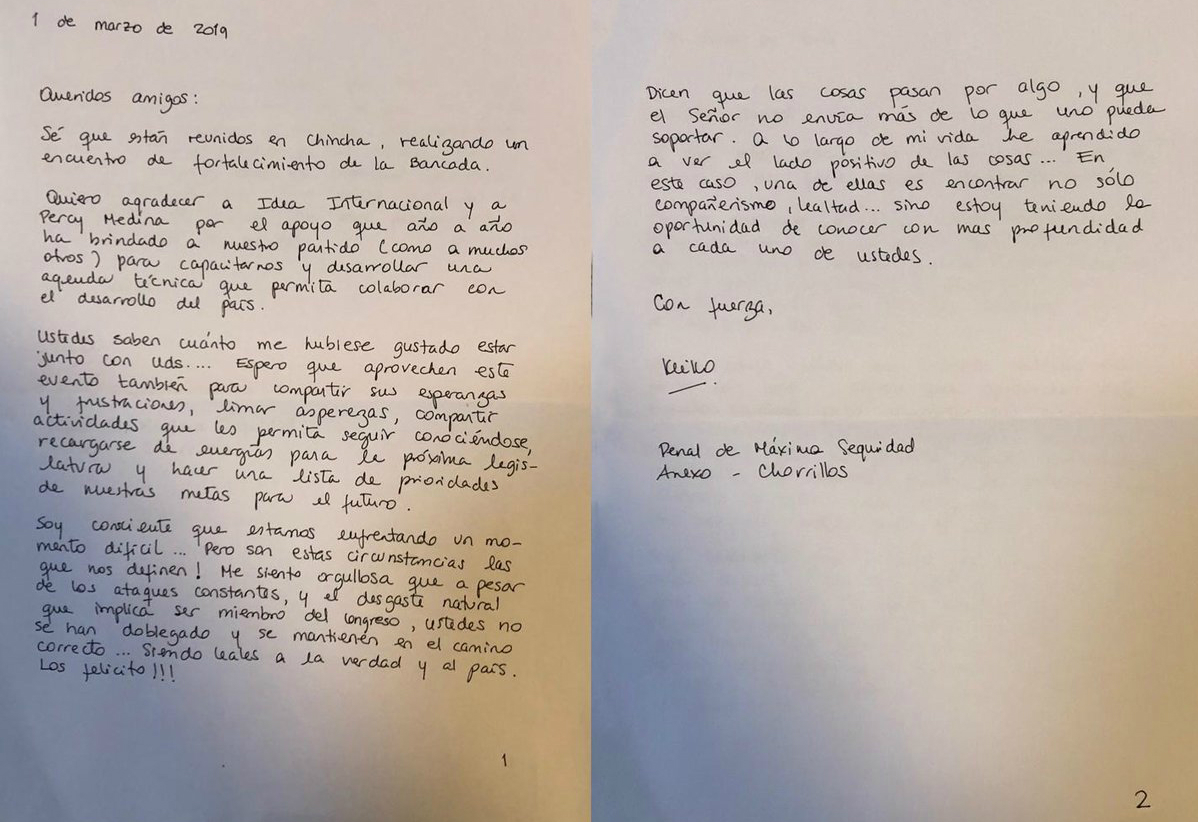 1 de marzo de 2019
Queridos amigos:
Sé que están reunidos en Chincha, realizando un
encuentro de fortalecimiento de la Bancada.
Quiero agradecer a Idea Internacional y a
Percy Medina por el apoyo que año a año
ha brindado a nuestro partido (como a muchos
otros) para capacitarnos y desarrollar una
agenda técnica que permita colaborar con
el desarrollo del país.
Ustedes saben cuánto me hubiese gustado estar
junto con uds.... Espero que aprovechen este
evento también para compartir sus esperanzas
y frustraciones, limar asperezas, compartir
actividades que les permita seguir conociéndose,
recargarse de energías para la próxima legis-
latura y hacer una lista de prioridades
de nuestras metas para el futuro.
Soy consciente que estamos enfrentando un mo-
mento difícil... Pero son estas circunstancias las
que nos definen! Me siento orgullosa que a pesar
de los ataques constantes, y el desgaste natural
que implica ser miembro del congreso, ustedes no
se han doblegado y se mantienen en el camino
correcto... Siendo leales a la verdad y al país.
Los felicito!!!
1
Dicen que las cosas pasan por algo, y que
el Señor no envía más de lo que uno pueda
soportar. A lo largo de mi vida he aprendido
a ver el lado positivo de las cosas... En
este caso, una de ellas es encontrar no sólo
compañerismo, lealtad... sino estoy teniendo la
oportunidad de conocer con mas profundidad
a cada uno de ustedes.
Con fuerza,
Keiko
Penal de Máxima Seguridad
Anexo - Chorrillos
2